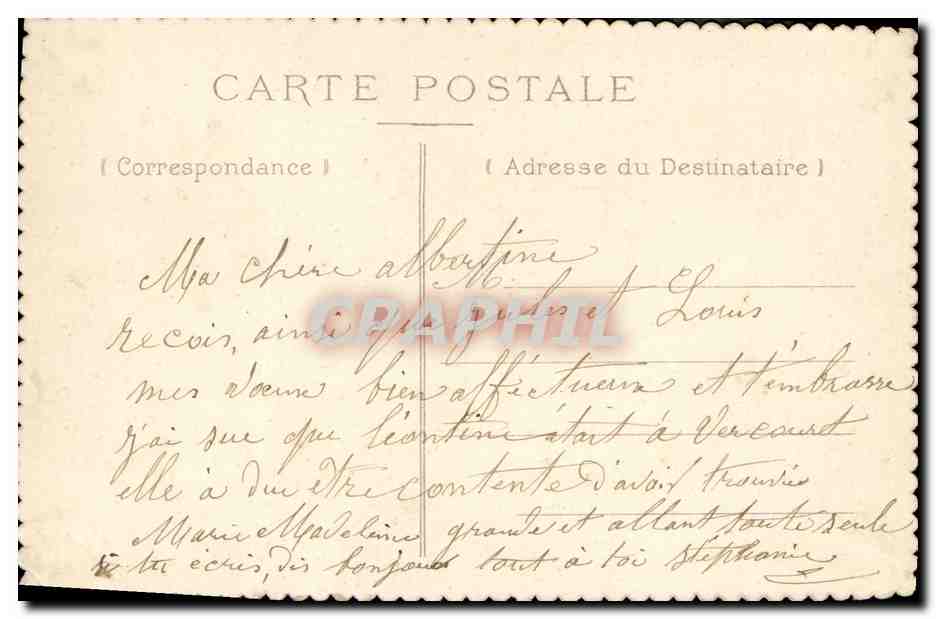 CARTE POSTALE
( Correspondance )
( Adresse du Destinataire )
Ma chère albertine
M.
CRAPHIL
reçois, ainsi que jules et Louis
mes voeux bien afféctueux et t'embrasse
j'ai sue que léontine était à Vercourt
elle à due être contente d'avoir trouvée
Marie Madeleine grande et allant toute seule
si tu écris, dis bonjour tout à toi stéphanie